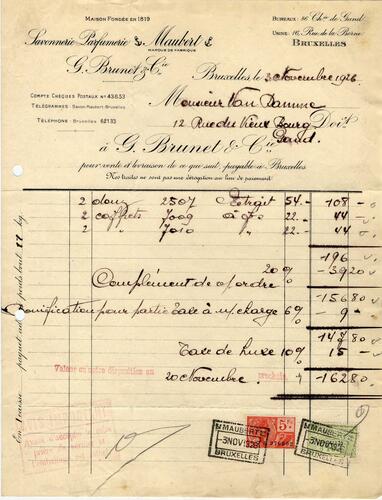 MAISON FONDÉE EN 1819
Savonnerie Parfumerie Maubert
MARQUE DE FABRIQUE
G. Brunet & Cie
BUREAUX: 86 Chée de Gand
USINE: 16, Rue de la Borne
BRUXELLES
Bruxelles, le 3 Novembre 1926
COMPTE CHÈQUES POSTAUX Nº 43853
TÉLÉGRAMMES: Savon-Maubert-Bruxelles
TÉLÉPHONE: Bruxelles 62133
Monsieur Van Damme
12 Rue du Vieux Bourg Doit
Gand.
à G. Brunet & Cie
pour vente et livraison de ce que suit, payable à Bruxelles
Nos traites ne sont pas une dérogation au lieu de paiement
2 douz 2507 54.- 108 -
2 coffrets 7009 à 22.- 44
2 " 7010 " 22.- 44
196
20 % - 39 20
Complément de
156 80
Bonification pour partie taxe à n/ charge 6 % - 9 -
147 80
Taxe de luxe 10 % 15 -
Valeur en votre disposition au
20 Novembre
prochain
162 80
En caisse paquet poids brut 17 kg
MAUBERT
3 NOV 1926
BRUXELLES
MAUBERT
3 NOV 1926
BRUXELLES